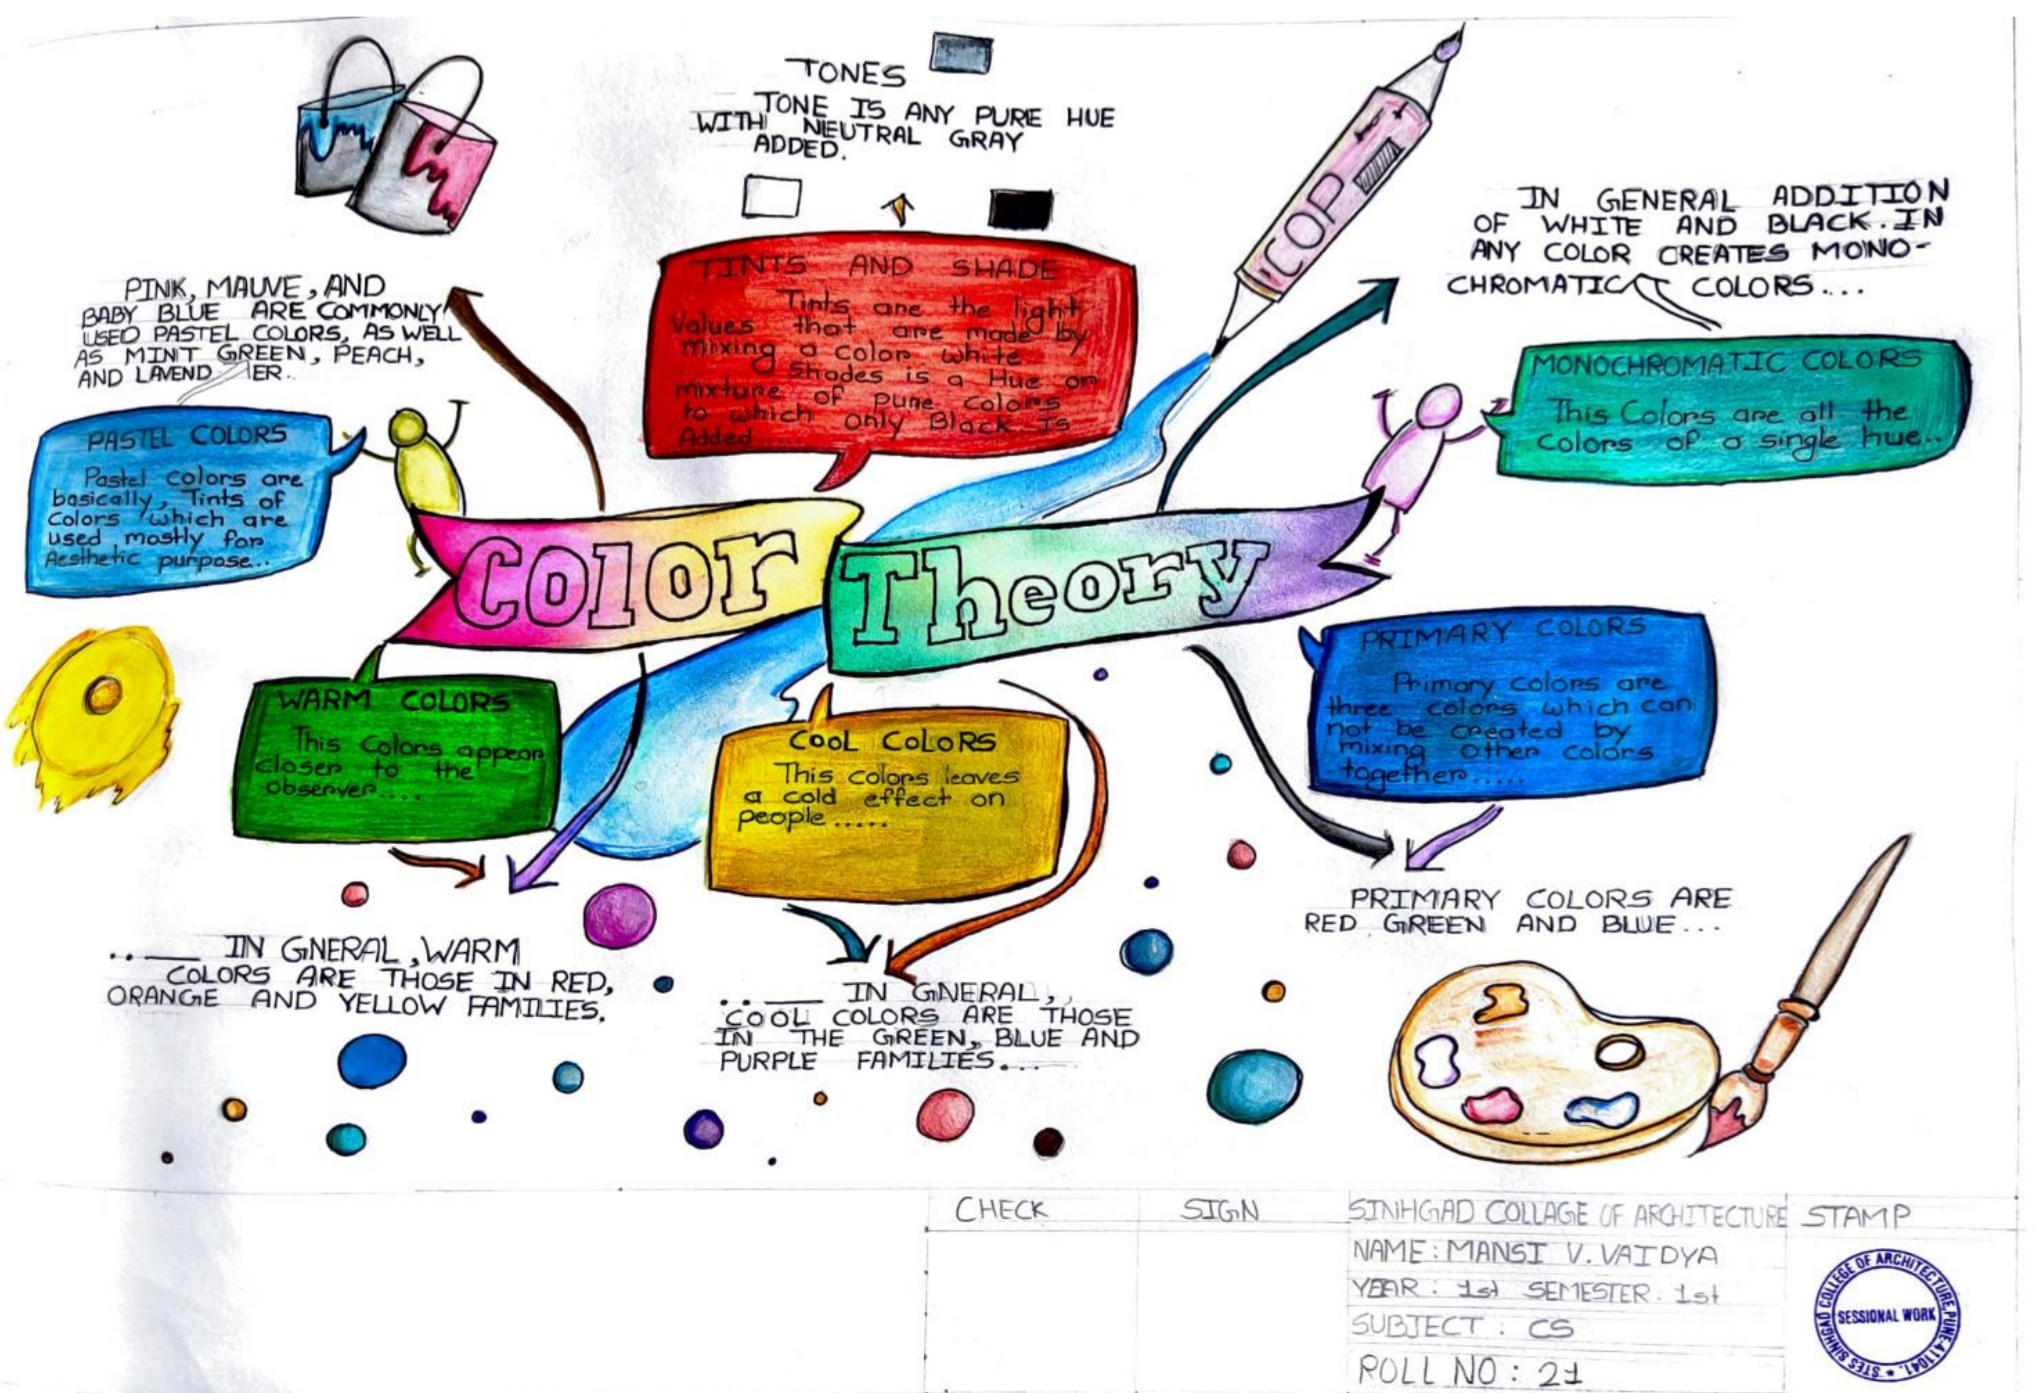 TONES
TONE IS ANY PURE HUE
WITH NEUTRAL GRAY
ADDED.
COP
IN GENERAL ADDITION
OF WHITE AND BLACK. IN
ANY COLOR CREATES MONO-
CHROMATIC COLORS...
PINK, MAUVE, AND
BABY BLUE ARE COMMONLY
USED PASTEL COLORS, AS WELL
AS MINT GREEN, PEACH,
AND LAVENDER.
TINTS AND SHADE
Tints are the light
Values that are made by
mixing a color white
Shades is a Hue or
mixture of pure colors
to which only Black Is
Added.....
MONOCHROMATIC COLORS
This Colors are all the
colors of a single hue..
PASTEL COLORS
Pastel colors are
basically, Tints of
Colors which are
used mostly for
Aesthetic purpose...
Color Theory
PRIMARY COLORS
Primary colors are
three colors which can
not be created by
mixing other colors
together.....
WARM COLORS
This Colors appear
closer to the
observer....
COOL COLORS
This colors leaves
a cold effect on
people.....
PRIMARY COLORS ARE
RED GREEN AND BLUE...
..___ IN GNERAL, WARM
COLORS ARE THOSE IN RED,
ORANGE AND YELLOW FAMILIES.
..___ IN GNERAL,
COOL COLORS ARE THOSE
IN THE GREEN, BLUE AND
PURPLE FAMILIES...
CHECK
SIGN
SINHGAD COLLAGE OF ARCHITECTURE
STAMP
NAME: MANSI V. VAIDYA
YEAR: 1st SEMESTER: 1st
SUBJECT: CS
ROLL NO: 21
STES SINHGAD COLLEGE OF ARCHITECTURE, PUNE-411041.
SESSIONAL WORK